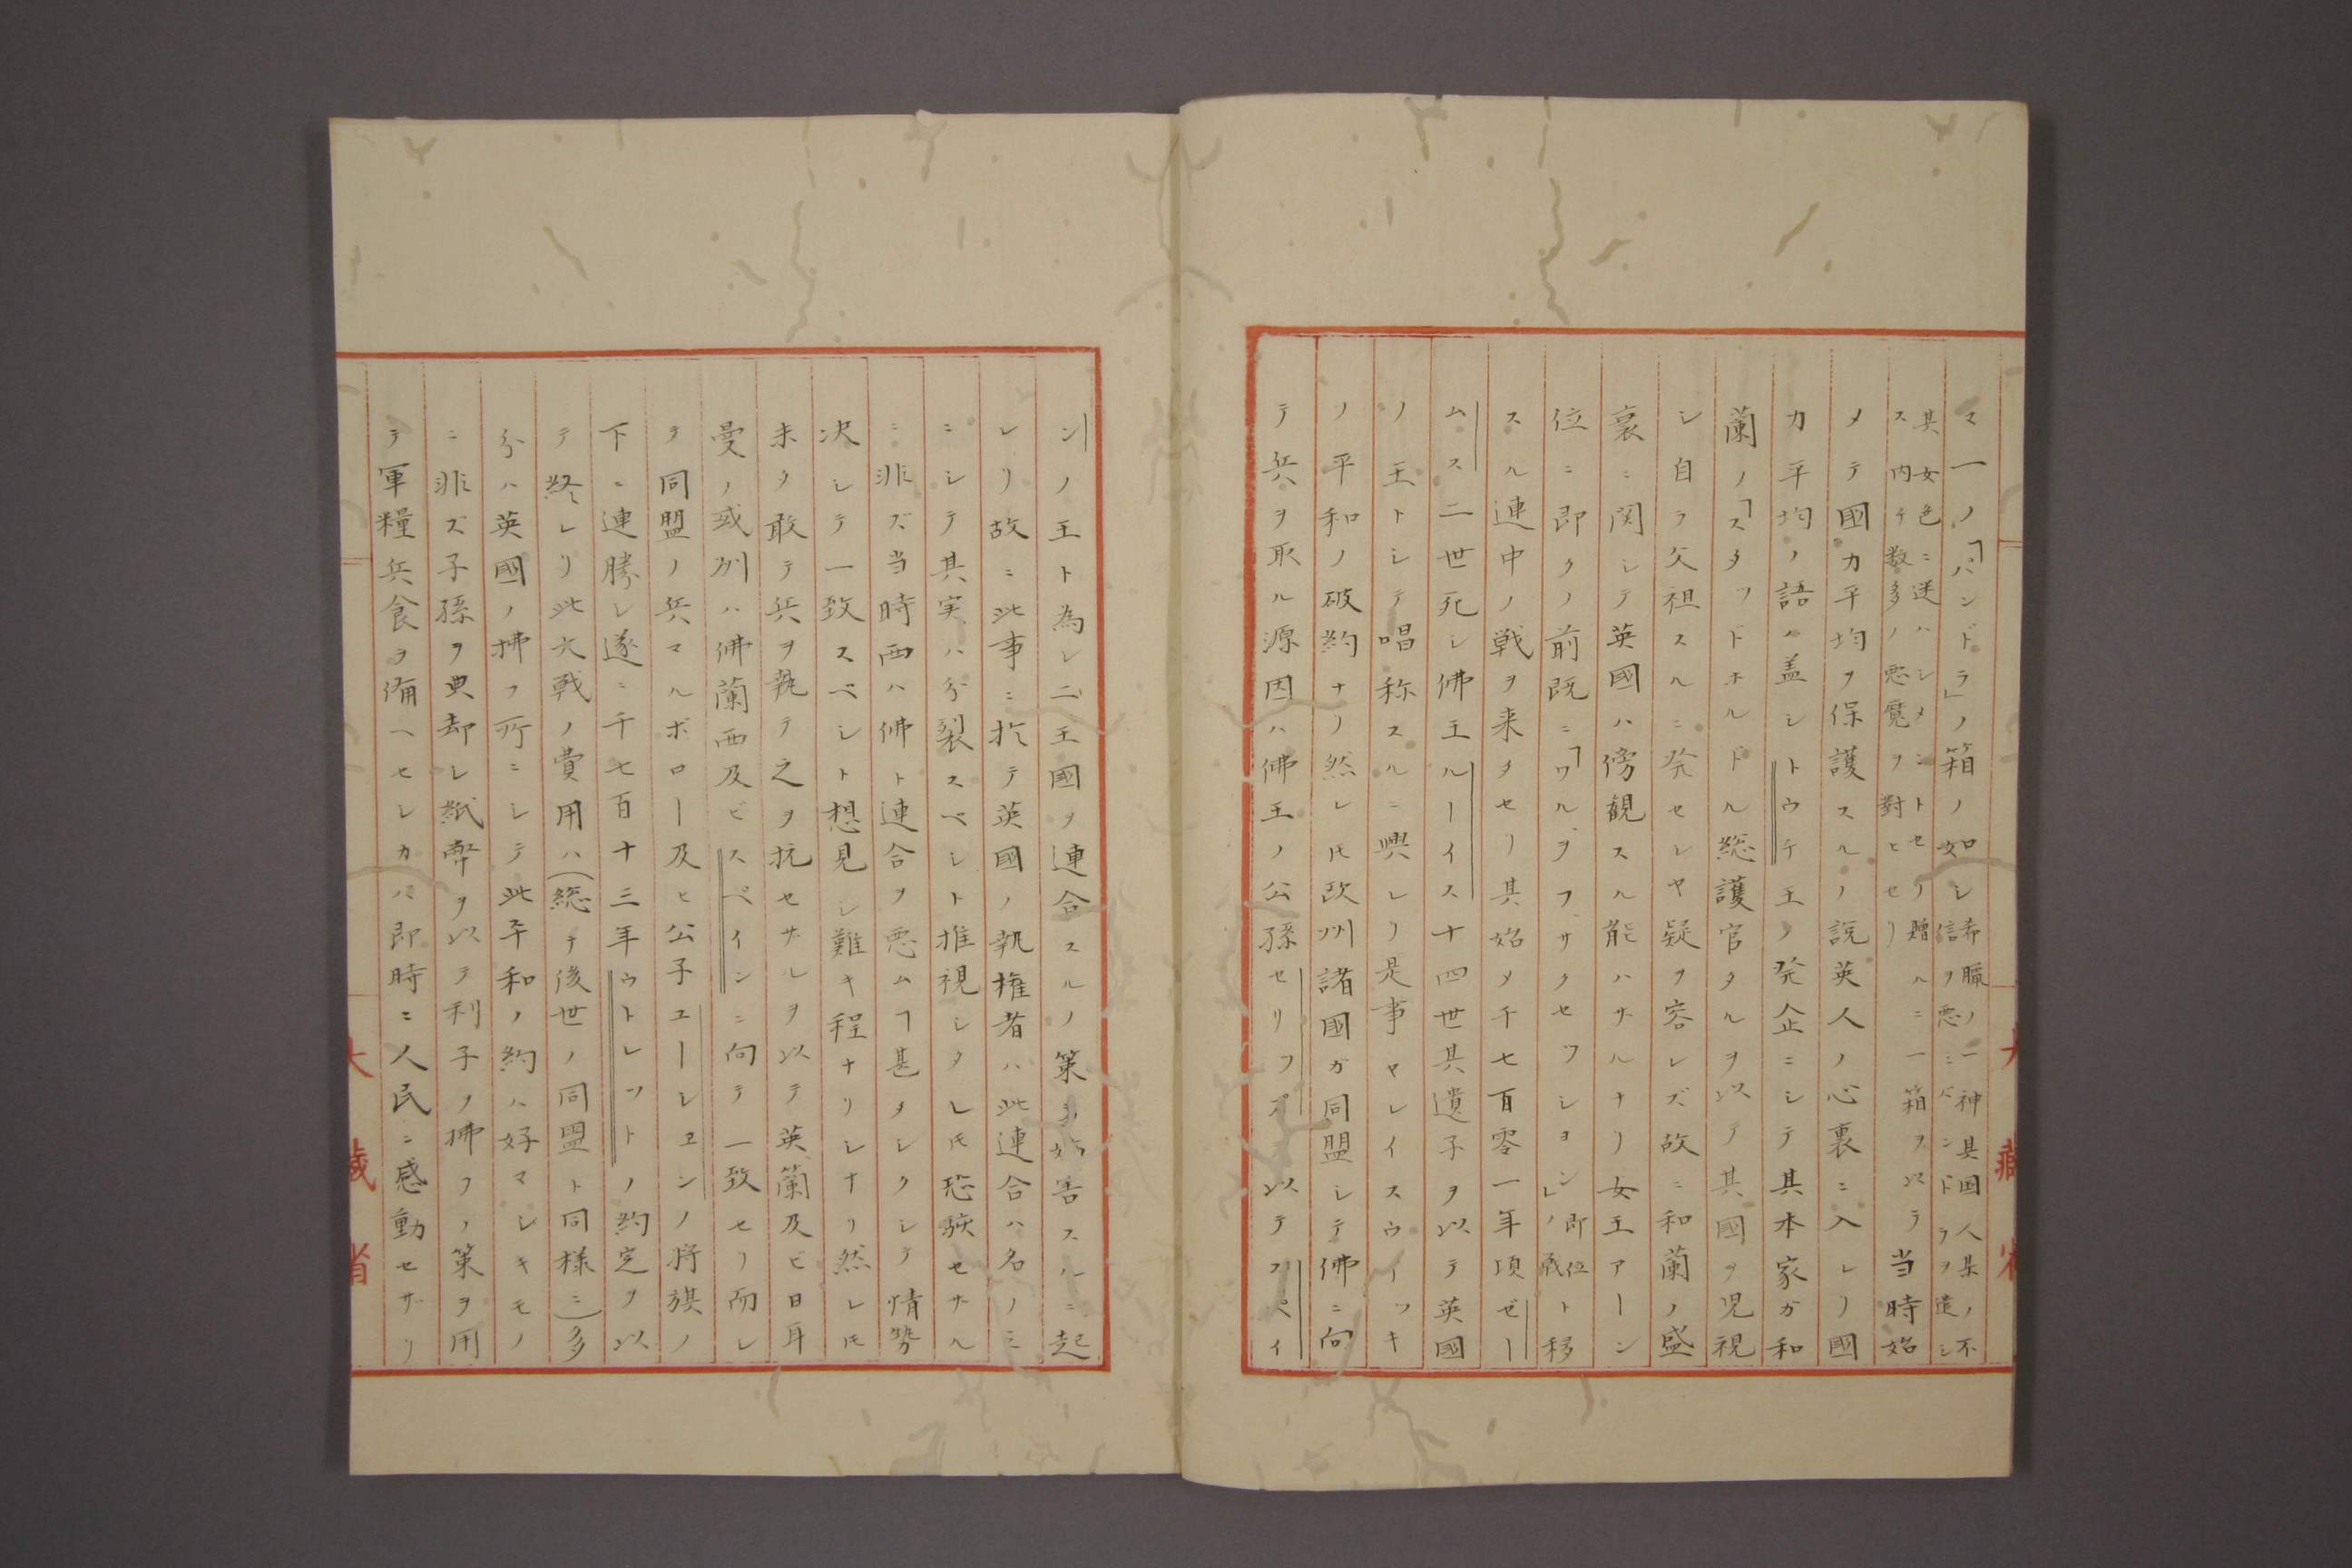 マ一ノ「パンドラ」ノ箱ノ如シ希臘ノ一神具国人某ノ不
信ヲ悪ミパンドラヲ遣シ
其女色ニ迷ハシメントセリ贈ルニ一箱ヲ以テ
ス内チ数多ノ悪魔ヲ封ヒセリ
当時始
メテ國カ平均ヲ保護スルノ説英人ノ心裏ニ入レリ國
カ平均ノ語ハ盖シトウチ王ノ発企ニシテ其本家ガ和
蘭ノ「スタツドホルドル総護官タルヲ以テ其國ヲ児視
シ自ラ父祖スルニ発セシヤ疑ヲ容レズ故ニ和蘭ノ盛
衰ニ関シテ英國ハ傍観スル能ハサルナリ女王アーン
位ニ即クノ前既ニ「ワルヲフサクセツシヨン」ノ即位
承位
ト移
スル連中ノ戦ヲ来タセリ其始メ千七百零一年頃ゼー
ムス二世死シ佛王ルーイス十四世其遺子ヲ以テ英國
ノ王トシテ唱称スルニ興レリ是事ヤレイスウイツキ
ノ平和ノ破約ナリ然レ𪜈欧州諸國ガ同盟シテ佛ニ向
テ兵ヲ取ル源因ハ佛王ノ公孫セリフヲ以テスペイ
ンノ王ト為シ二王國ヲ連合スルノ策ヲ妨害スルニ起
レリ故ニ此事ニ於テ英國ノ執権者ハ此連合ハ名ノミ
ニシテ其実ハ分裂スベシト推視シタレ𪜈恐駭セサル
ニ非ズ当時西ハ佛ト連合ヲ悪ムヿ甚タシクシテ情勢
决シテ一致スベシト想見シ難キ程ナリシナリ然レ𪜈
未タ敢テ兵ヲ執テ之ヲ抗セサルヲ以テ英蘭及ビ日耳
曼ノ或州ハ佛蘭西及ビスペインニ向テ一致セリ而シ
テ同盟ノ兵マルボロー及ヒ公子ユーシヱンノ将旗ノ
下ニ連勝シ遂ニ千七百十三年ウトレツトノ約定ヲ以
テ終レリ此大戦ノ費用ハ(総テ後世ノ同盟ト同様ニ)多
分ハ英國ノ拂フ所ニシテ此平和ノ約ハ好マシキモノ
ニ非ズ子孫ヲ典却シ紙幣ヲ以テ利子ヲ拂フノ策ヲ用
テ軍糧兵食ヲ備ヘセシカバ即時ニ人民ニ感動セザリ
大藏省
大藏省